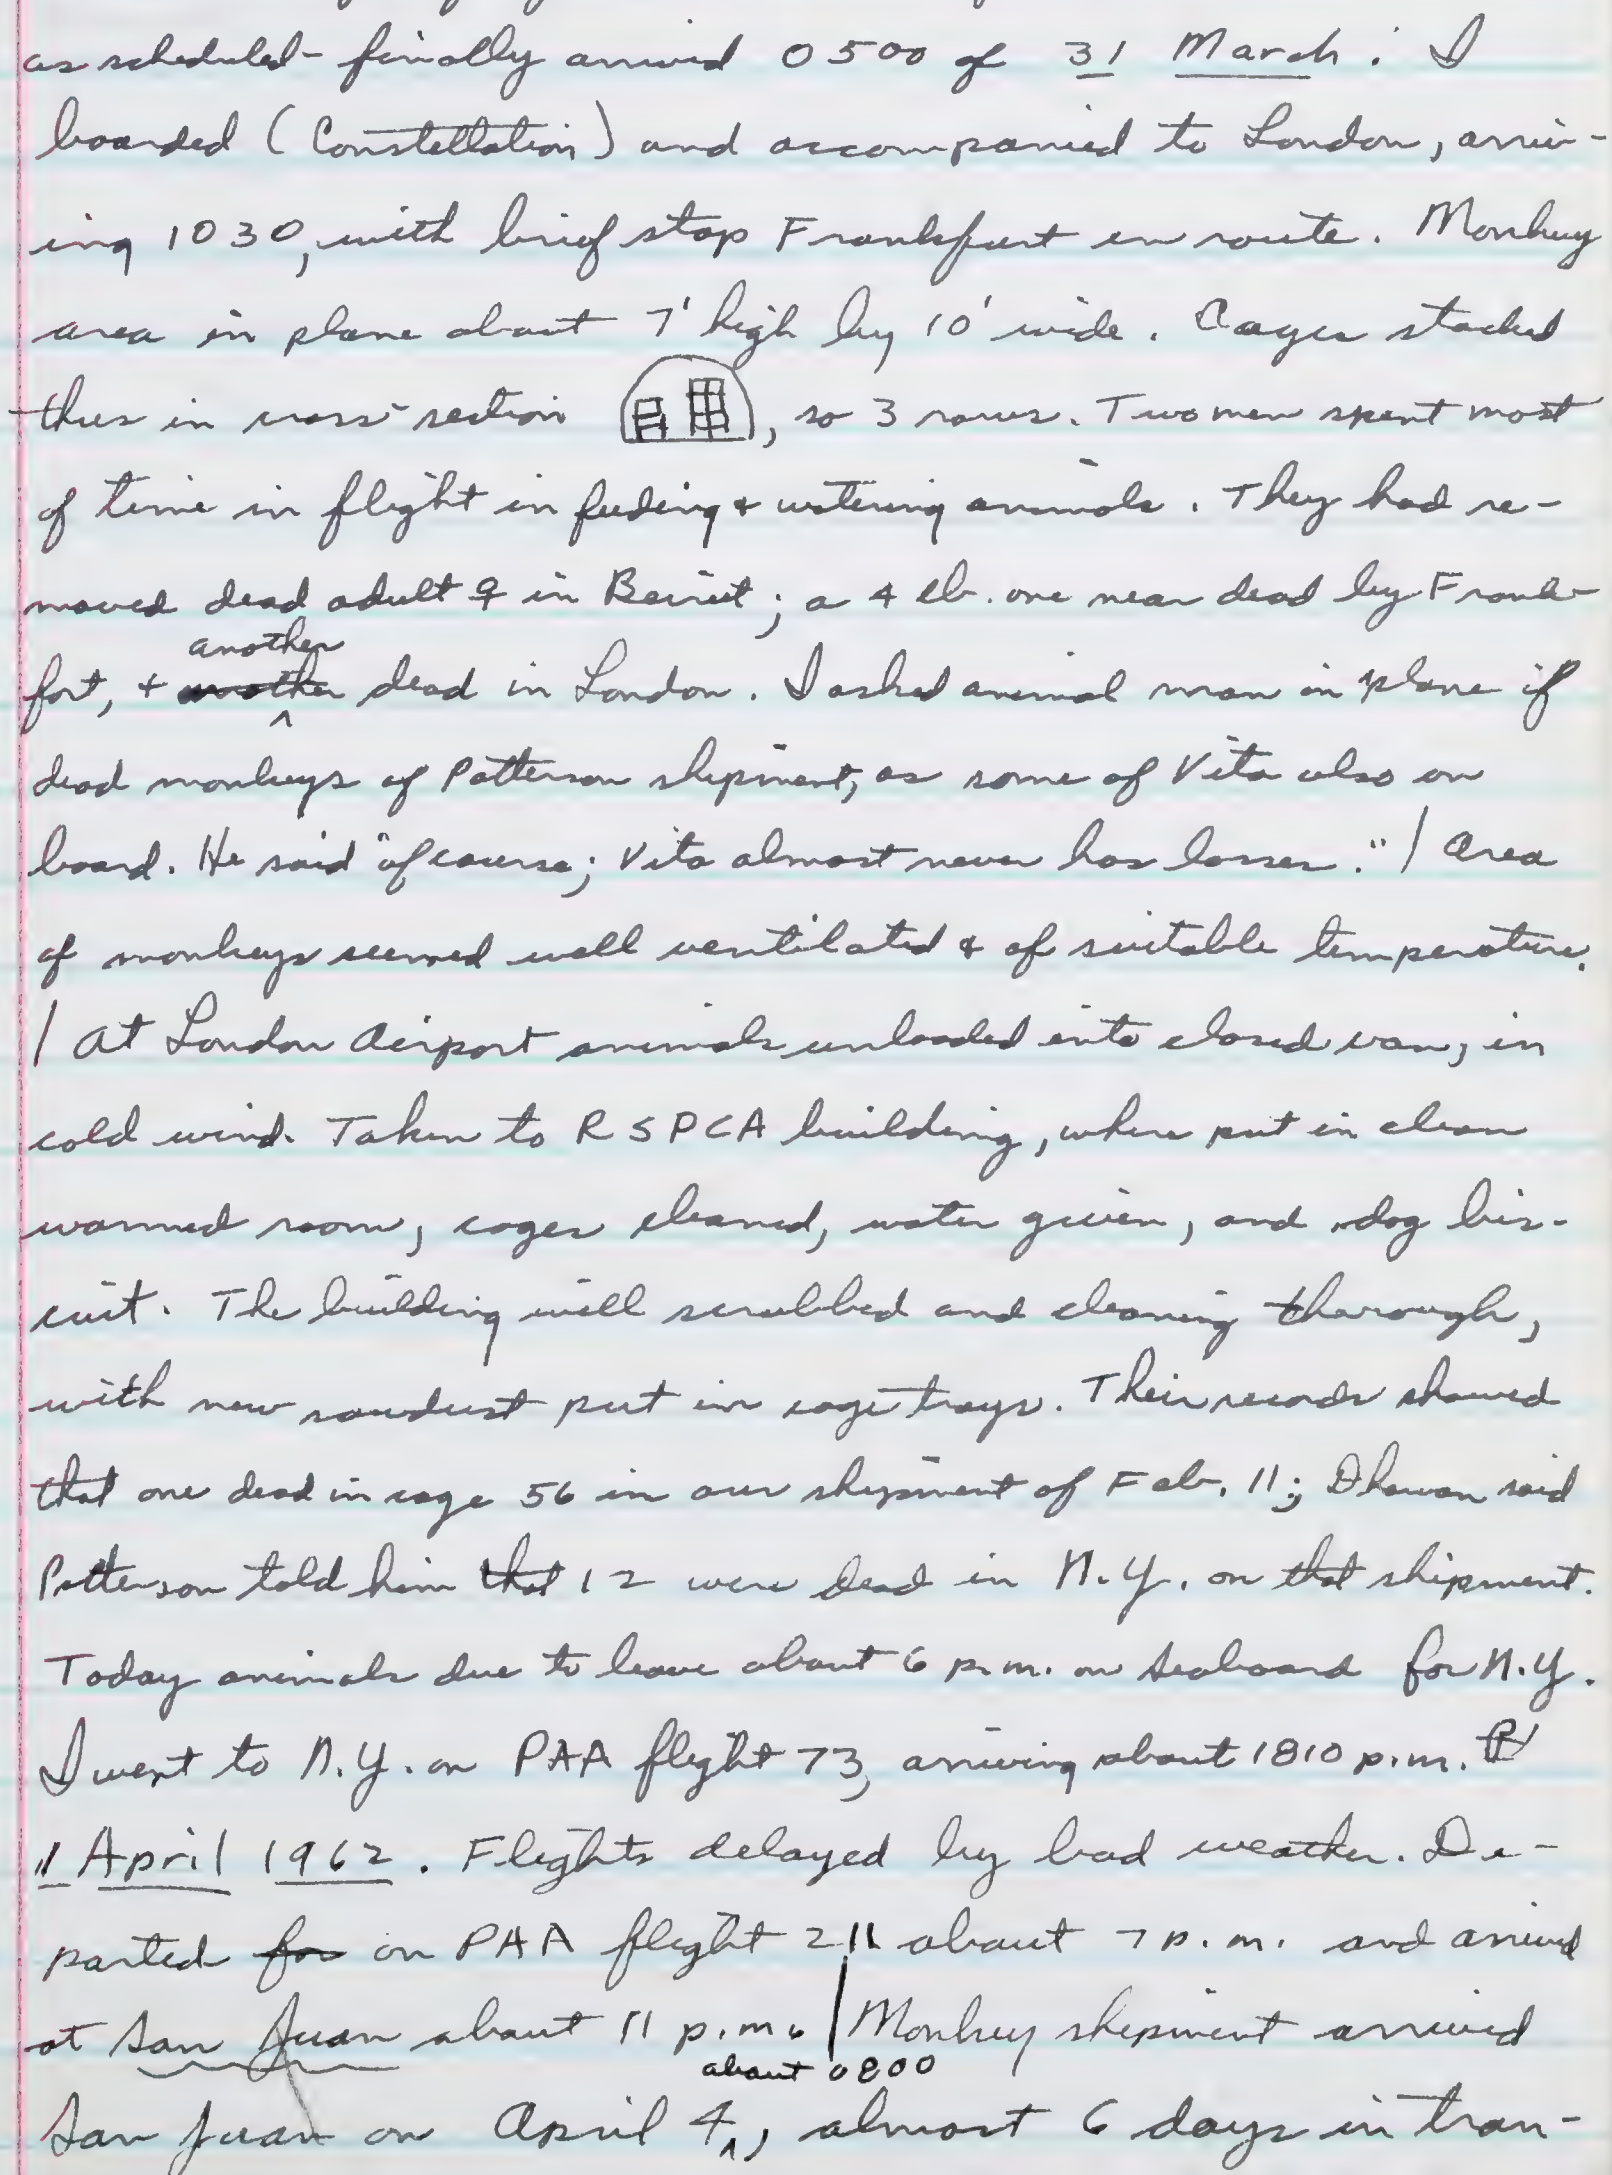 as scheduled - finally arrived 0500 of 31 March. I
boarded (Constellation) and accompanied to London, arriv-
ing 1030, with brief stop Frankfurt en route. Monkey
area in plane about 7' high by 10' wide. Cages stacked
thus in cross-section , so 3 rows. Two men spent most
of time in flight in feeding & watering animals. They had re-
moved dead adult ♀ in Beirut; a 4 lb. one near dead by Frank-
fort, & another dead in London. I asked animal man in plane if
dead monkeys of Patterson shipment, as some of Vita also on
board. He said "of course; Vita almost never has losses." / Area
of monkeys seemed well ventilated & of suitable temperature.
/ At London Airport animals unloaded into closed van, in
cold wind. Taken to RSPCA building, where put in clean
warmed room, cages cleaned, water given, and dog bis-
cuit. The building well scrubbed and cleaning thorough,
with new sawdust put in cage trays. Their records showed
that one dead in cage 56 in our shipment of Feb. 11; Dhawan said
Patterson told him that 12 were dead in N.Y. on that shipment.
Today animals due to leave about 6 p.m. on Seaboard for N.Y.
I went to N.Y. on PAA flight 73, arriving about 1810 p.m.
1 April 1962. Flights delayed by bad weather. De-
parted for on PAA flight 211 about 7 p.m. and arrived
at San Juan about 11 p.m. / Monkey shipment arrived
San Juan on April 4 about 0800, almost 6 days in tran-